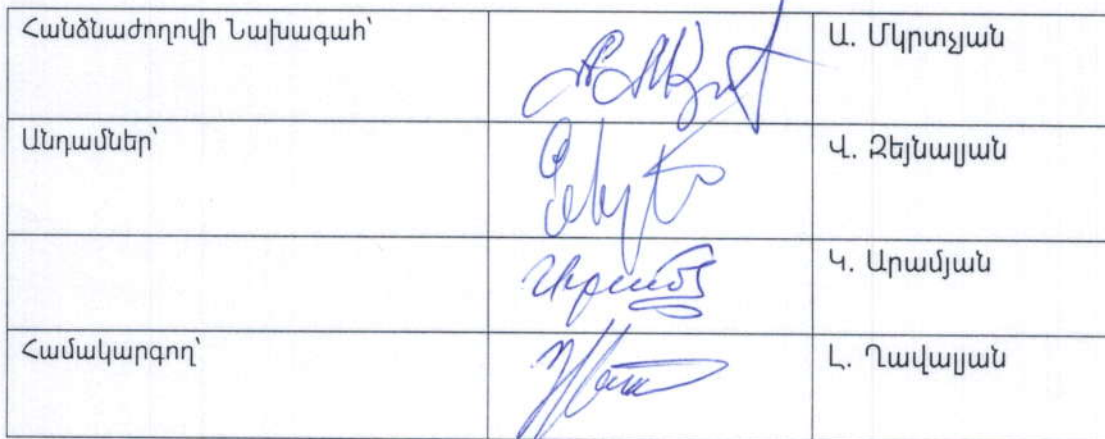 Հանձնաժողովի Նախագահ՝ Ա. Մկրտչյան
Անդամներ՝ Վ. Զեյնալյան
Կ. Արամյան
Համակարգող՝ Լ. Ղավալյան